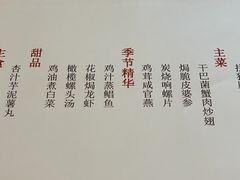 主菜
干巴菌蟹肉炒翅
焗脆皮婆参
炭烧响螺片
鸡茸咸官燕
季节精华
鸡汁蒸鲳鱼
花椒焗龙虾
橄榄螺头汤
鸡油煮白菜
甜品
杏汁芋泥薯丸